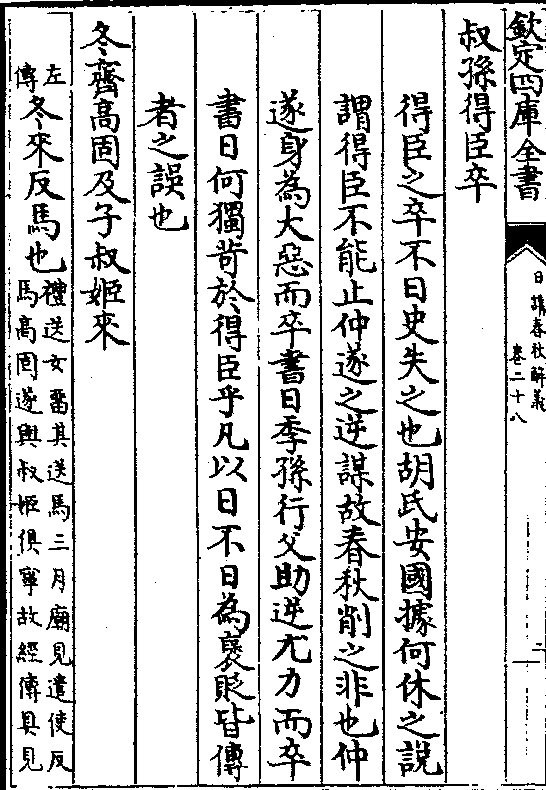 欽定四庫全書
日講春秋解義
卷二十八
二
叔孫得臣卒
得臣之卒不日史失之也胡氏安國據何休之說
謂得臣不能止仲遂之逆謀故春秋削之非也仲
遂身為大惡而卒書日季孫行父助逆尤力而卒
書日何獨苛於得臣乎凡以日不日為襃貶皆傳
者之誤也
冬齊高固及子叔姬來
左傳冬來反馬也禮送女畱其送馬三月廟見遣使反
馬高固遂與叔姬俱寧故經傳具見